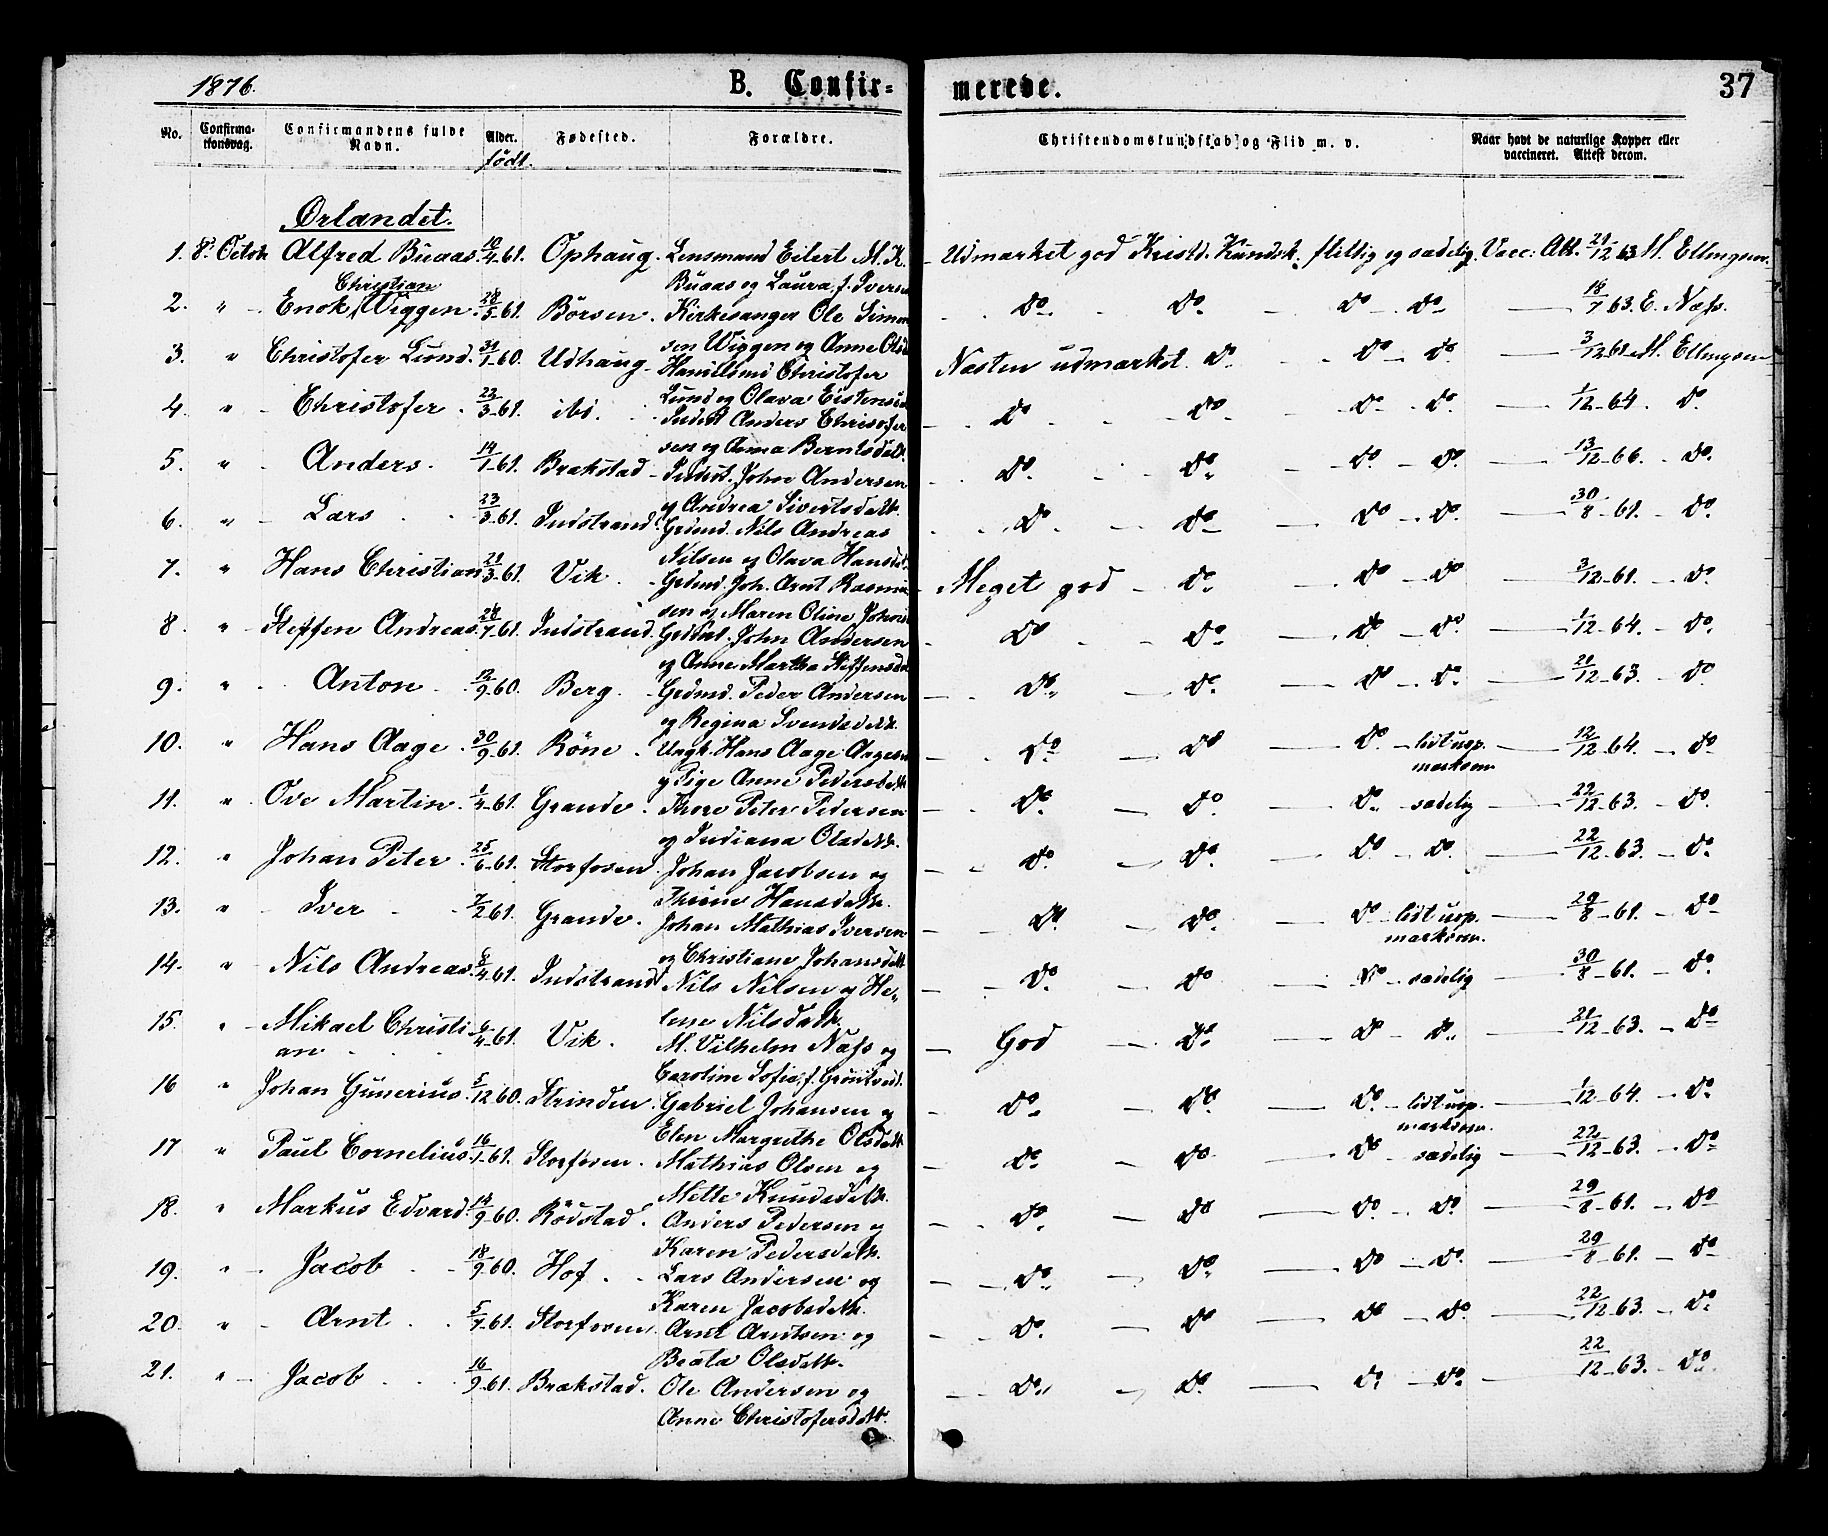 1876.
B. Confir=
merede.
37
No. Confirma-tionsdag. Confirmandens fulde Navn. Alder. født. Fødested. Forældre. Christendomskundskab og Flid m. v. Naar havt de naturlige Kopper eller vaccineret. Attest derom.
Ørlandet.
1. 8de Octob Alfred Buaas 61. Ophaug. Lensmand Eilert M. K. Buaas og Laura, f. Iversen Udmærket god Kristd. Kundsk. flittig og sædelig. Vacc: Att. 21/12 63 M. Ellingsen
2. " Enok Christian Wiggen 28/5 61. Börsen. Kirkesanger Ole Simonsen Wiggen og Anne Olsd do do do do 18/7 63. E. Næss.
3. " Christofer Lund 31/1 60. Udhaug Handelsmd Christofer Lund og Olava Næsten udmærket do do do 3/12 61 M. Ellingsen
4. " Christofer 23/3 61. ibd. Inderst Anders Christofersen og Anna Berntsdatt. do do do do 1/12 64. do
5. " Anders 14/1 61. Brækstad Inderst. John Andersen og Andrea Sivertsdatt. do do do do 13/12 66. do
6. " Lars 23/3 61. Indstrand Grdmd. Nils Andreas Nilsen og Olava Hansdt. do do do do 30/8 61. do
7. " Hans Christian 21/3 61. Vik. Grdmd. Joh. Arnt Rasmussen og Maren Oline Meget god do do do 3/12 61. do
8. " Steffen Andreas 28/7 61. Indstrand. John Andersen og Anne Martha Steffensdt do do do do 1/12 64. do
9. " Anton 12/9 60. Berg. Grdmd. Peder Andersen og Regina Svendsdatt. do do do do 21/12 63. do
10. " Hans Aage 30/9 61. Röne. Ungk. Hans Aage Aagesen og Pige Anne Pedersdatt do do do lidt uopmærksom 12/12 64. do
11. " Ove Martin 1/4 61. Grande. Thore Peter Pedersen og Indiana Olsdatt. do do do sædelig 22/12 63. do
12. " Johan Peter 25/6 61. Storfosen Johan Jacobsen og Hansdatt. do do do do 22/12 63. do
13. " Iver 7/2 61. Grande. Johan Mathias Iversen og Christiane Johansdatt do do do lidt uopmærksom. 29/8 61. do
14. " Nils Andreas 8/4 61. Indstrand Nils Nilsen og Helene Nilsdatt. do do do sædelig 30/8 61. do
15. " Mikael Christian 6/4 61. Vik. M. Vilhelm Næss og Caroline Sofie, f. Grüntvedt. God do do do 21/12 63. do
16 " Johan Gunerius 5/12 60. Strinden. Gabriel Johansen og Elen Margrethe Olsdatt do do do lidt uopmærksom. 1/12 64. do
17 " Paul Cornelius 16/1 61. Storfosen. Mathias Olsen og Mette Knudsdatt. do do do sædelig 22/12 63. do
18. " Markus Edvard 14/9 60. Rödstad. Anders Pedersen og Karen Pedersdatt. do do do do 29/8 61. do
19. " Jacob 18/9 60. Hof. Lars Andersen og Karen Jacobsdatt. do do do do 29/8 61. do
20 " Arnt 5/7 61. Storfosen Arnt Arntsen og Beata Olsdatt. do do do do 22/12 63. do
21. " Jacob 16/9 61. Brækstad. Ole Andersen og Anne Christofersdatt. do do do do 22/12 63. do